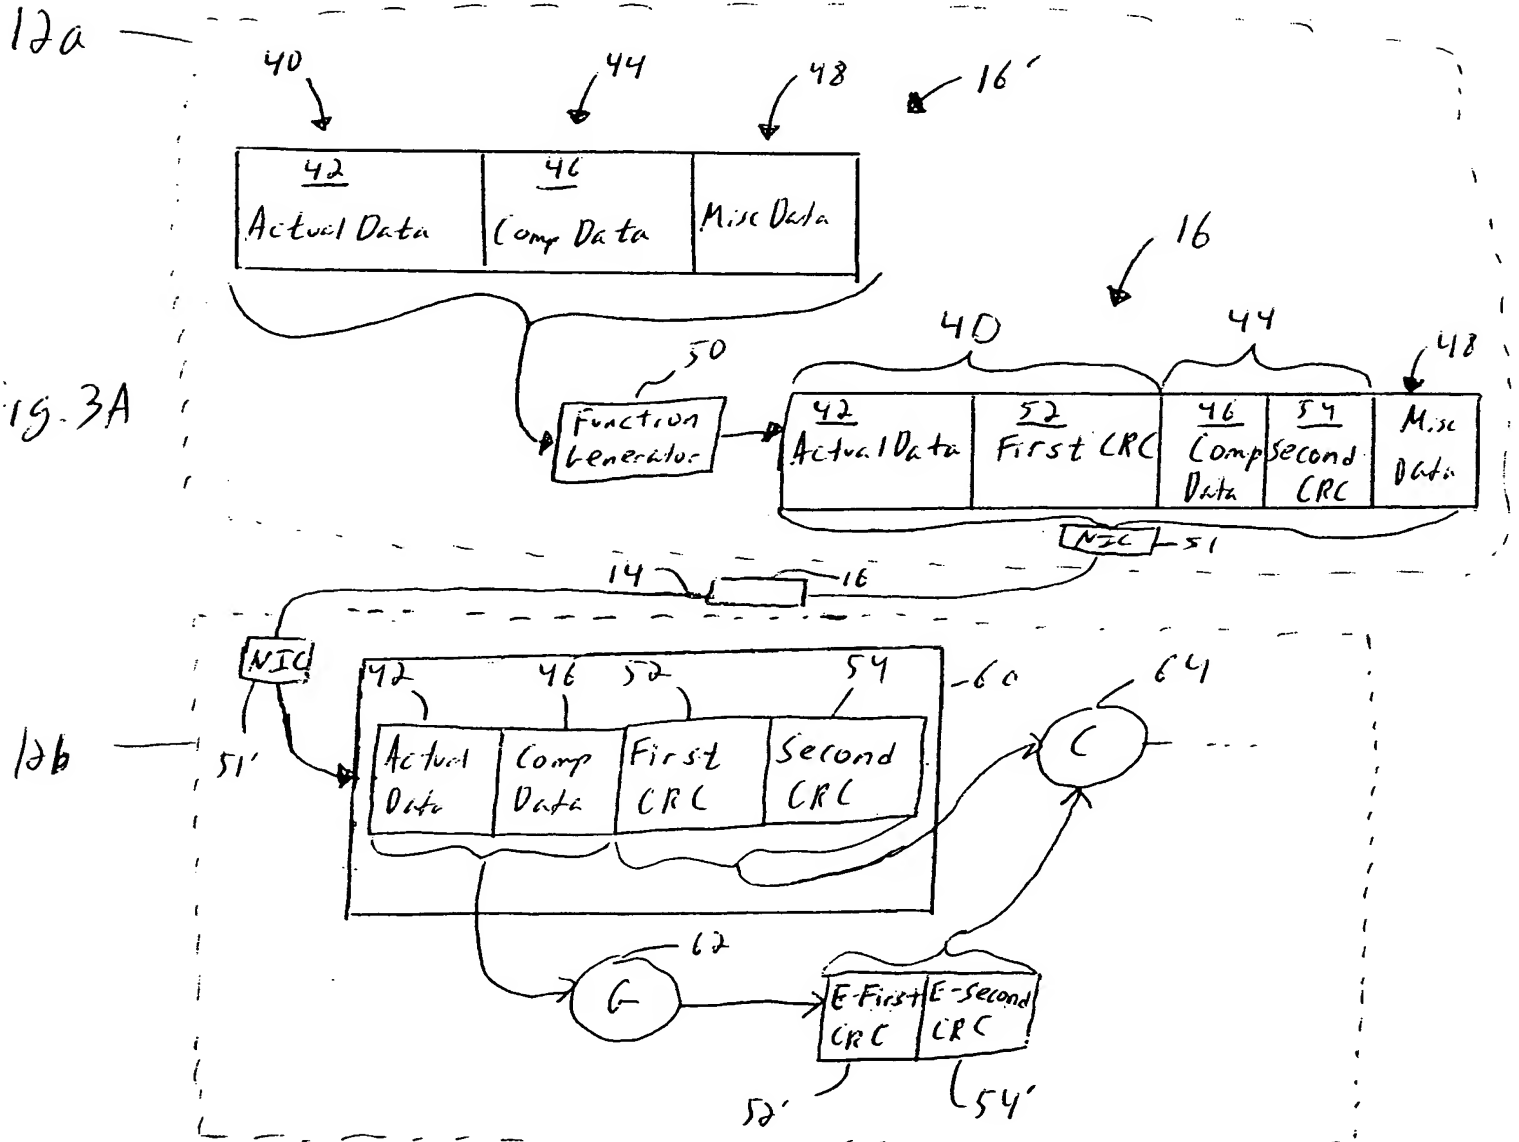 12a
40
44
48
16'
42
46
Actual Data
Comp Data
Misc Data
16
50
40
44
48
ig. 3A
Function
Generator
42
52
46
54
Misc
Data
Actual Data
First CRC
Comp
Data
Second
CRC
NIC
51
14
16
NIC
51'
42
46
52
54
60
64
12b
Actual
Data
Comp
Data
First
CRC
Second
CRC
C
62
G
E-First
CRC
E-Second
CRC
52'
54'